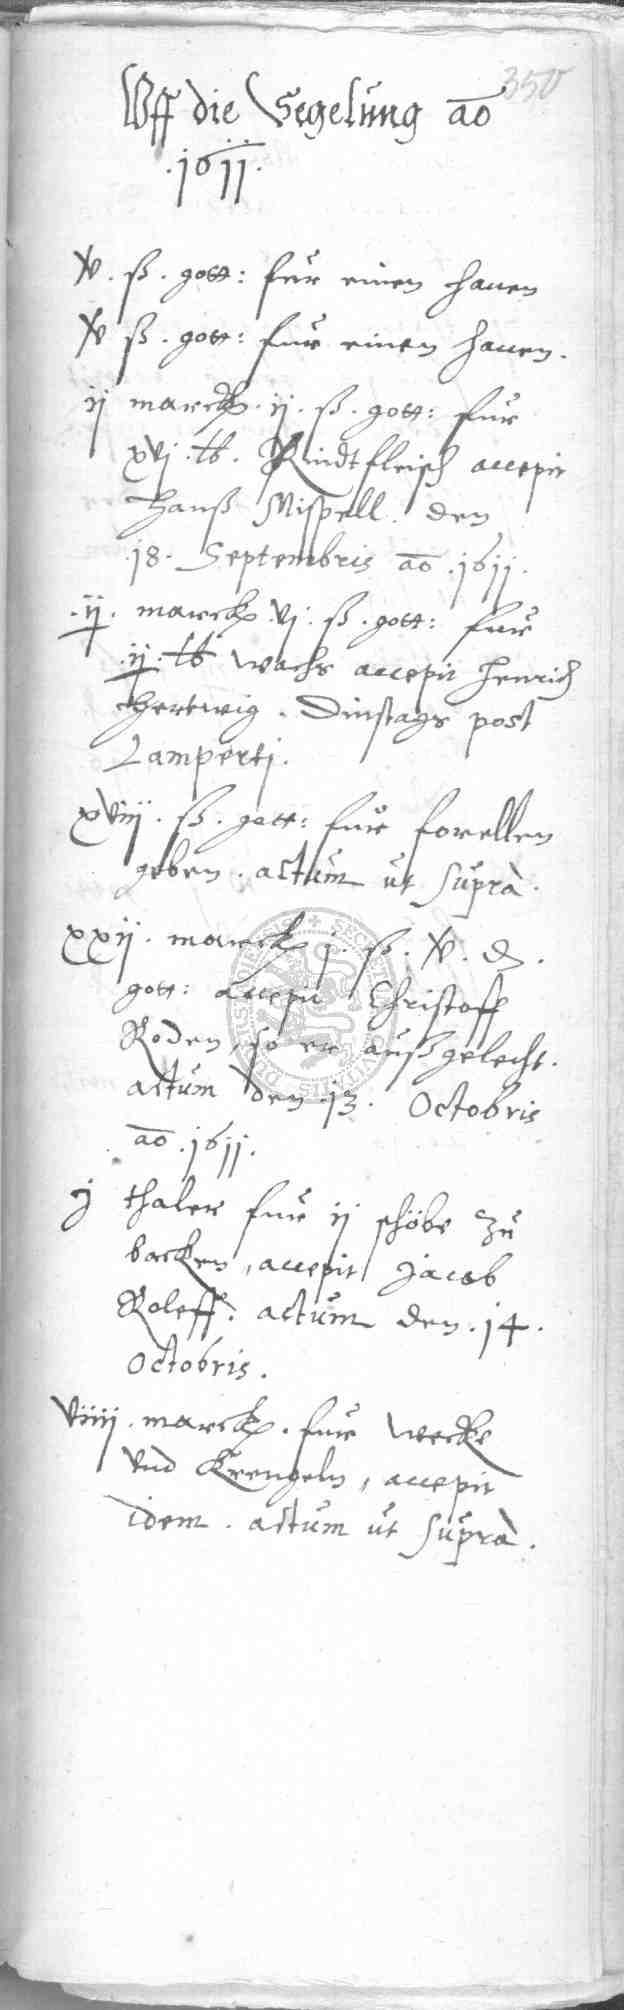 350
Uff die Segelung ao
.1611.
v. ß. gott: fur einen hanen
v ß. gott: fur einen hanen.
ij marck. ij. ß. gott: fur
xvj. lb. Rindtfleisch accepit
Hanß Mispell. den
18. Septembris ao .1611.
.ij. marck. vj. ß. gott: fur
.ij. lb wachs accepit Henrich
Hertwig. Dinstags post
Lamperti.
xviij. ß. gott: fur forellen
geben. actum ut supra.
xxij. marck j. ß. v. d.
gott: accepit Christoff
Roden, so er außgelecht.
actum den .13. Octobris
ao .1611.
j thaler fur ij schöbe zu
backen, accepit Jacob
Roleff. actum den .14.
Octobris.
viiij. marck. fur wecke
und Krengeln, accepit
idem. actum ut supra.